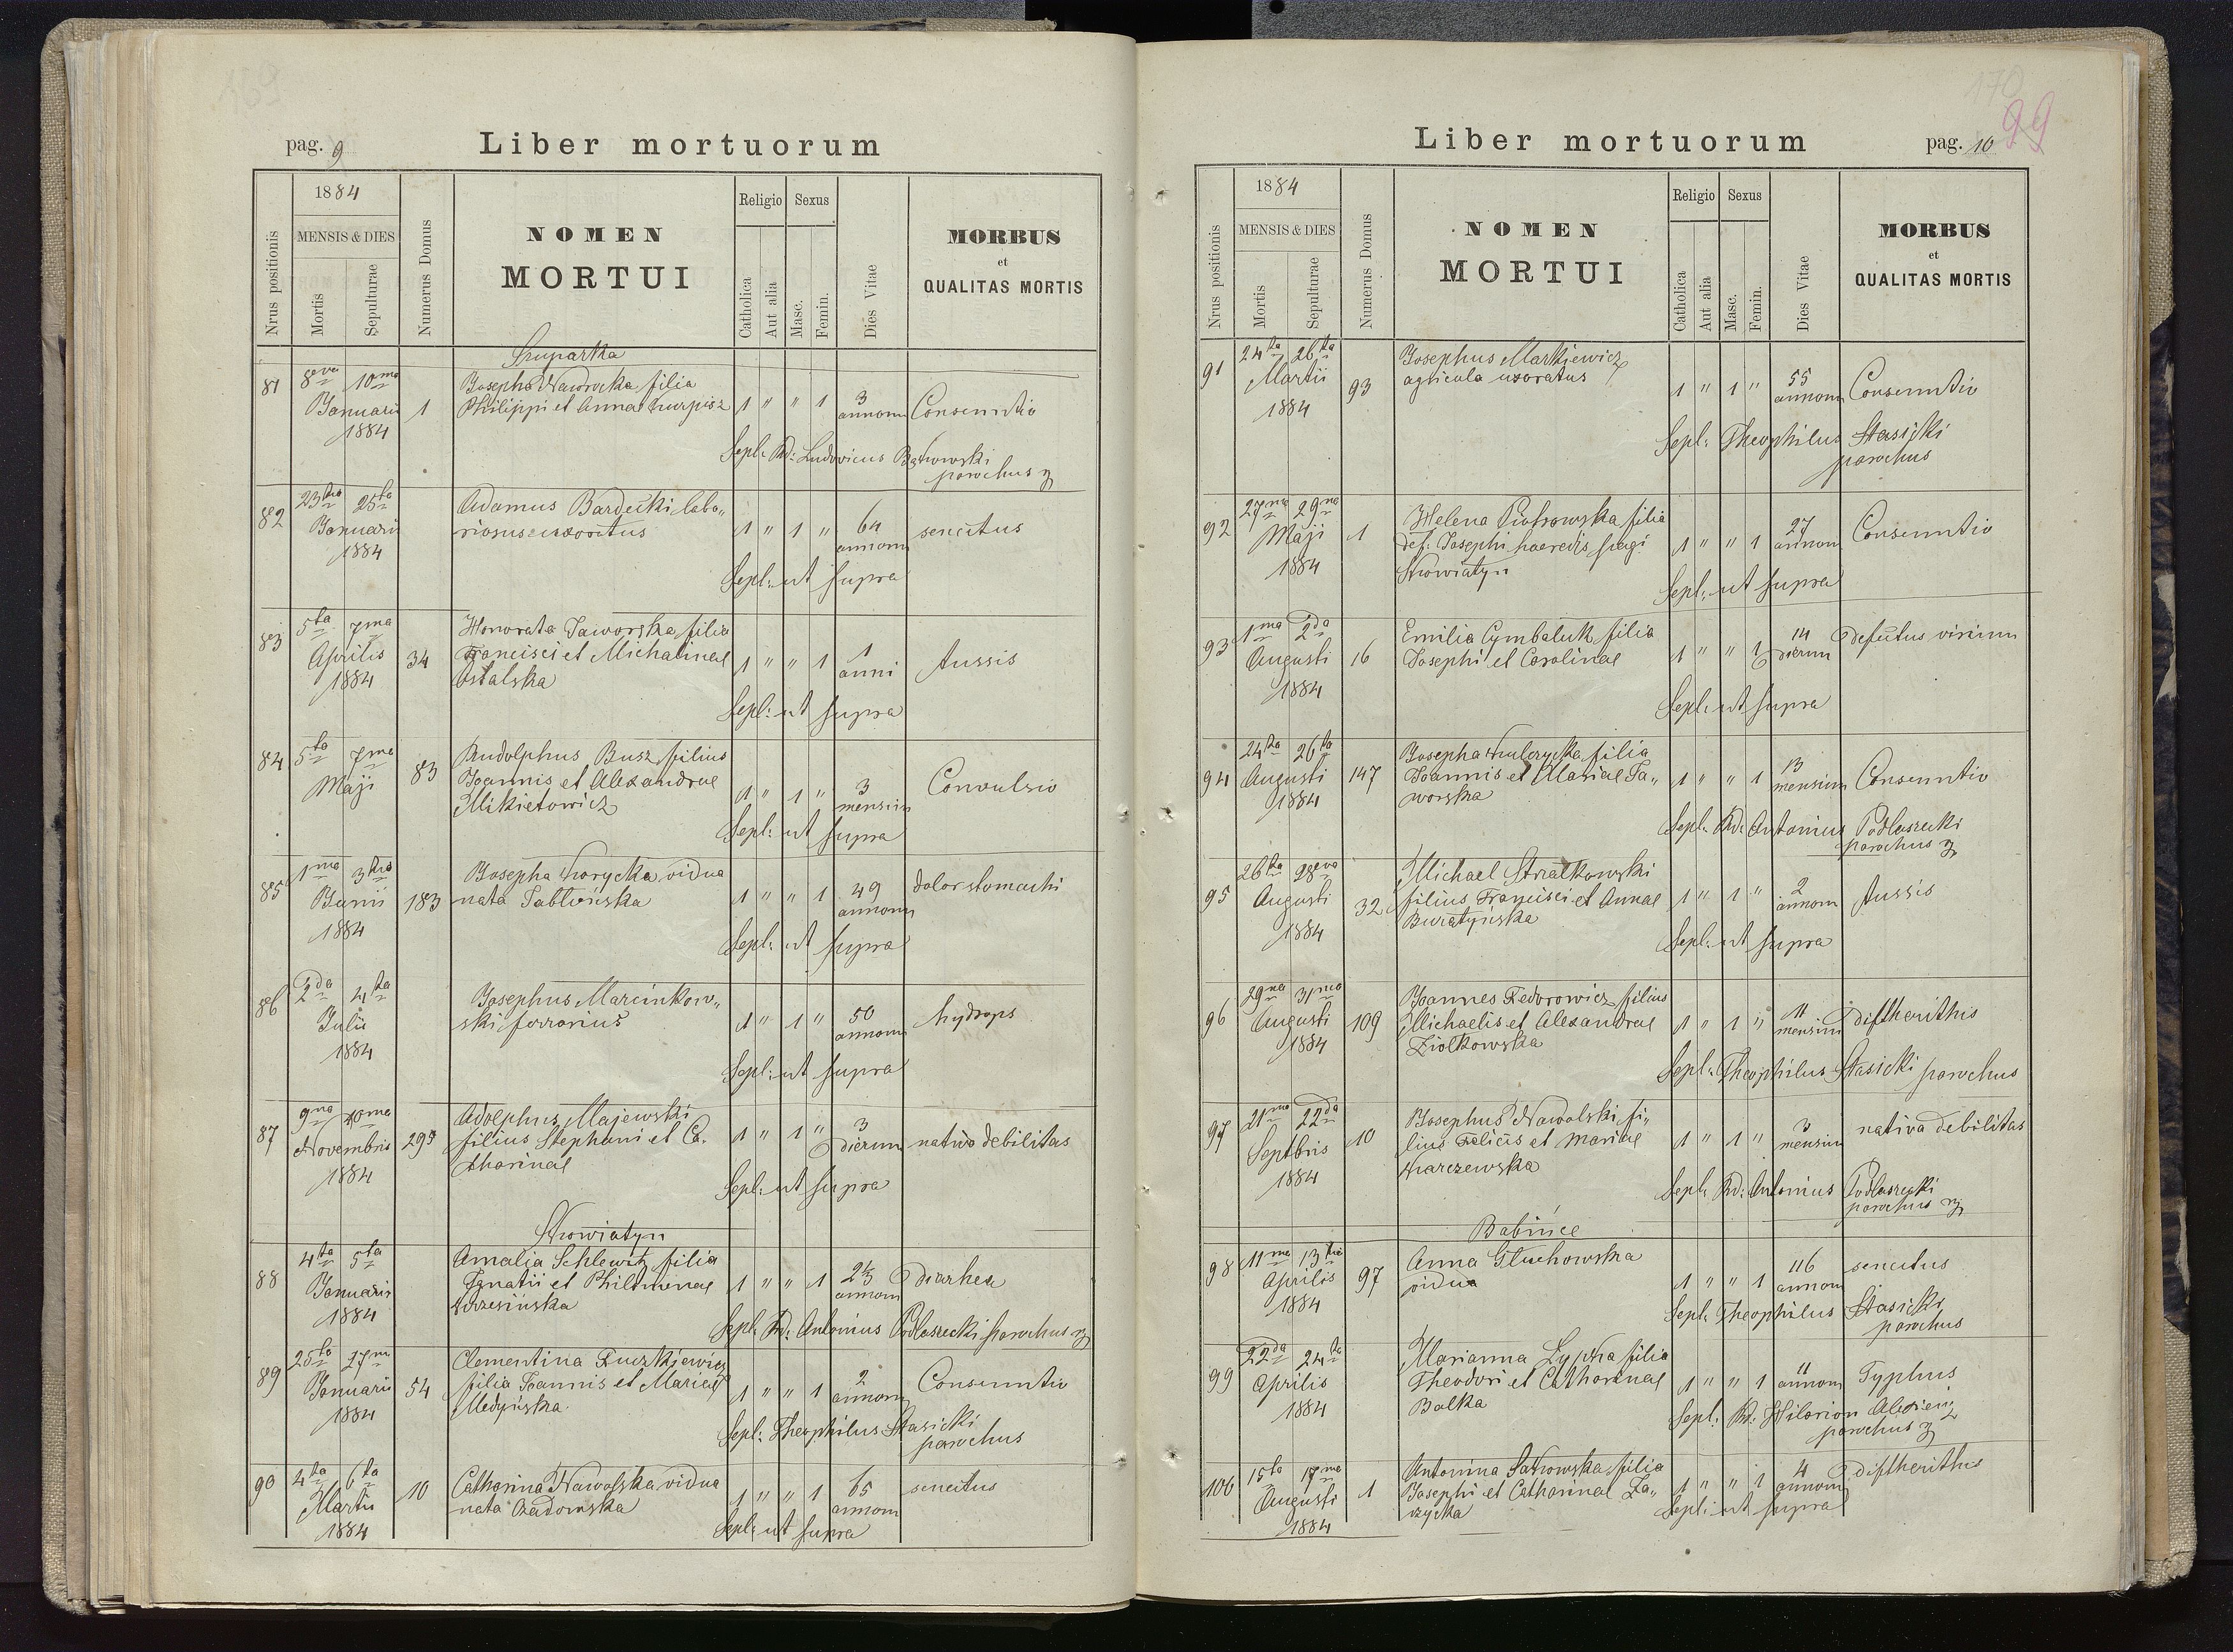 169
pag. 9 Liber mortuorum
Nrus positionis
1884
MENSIS & DIES
Mortis
Sepulturae
Numerus Domus
NOMEN
MORTUI
Religio Sexus
Catholica
Aut alia
Masc.
Femin.
Dies Vitae
MORBUS
et
QUALITAS MORTIS
Szuparka
81 8va 10ma Josepha Nawrocka filia
Januarii 1 Philippi et Annae 1 " " 1 3 annorum
1884
Sepl. Rd: Ludovicus
parochus
82 23tia 25ta Adamus Bardecki labo„
Januarii riosus uxoratus 1 " 1 " 64 annorum senectus
1884
Sepl: ut supra
83 5ta 7ma Honorata Jaworska filia
Aprilis 34 Francisci et Michalinae 1 " " 1 1 anni tussis
1884 Ostalska
Sepl: ut supra
84 5ta 7ma 83 Rudolphus Busz filius
Maji Joannis et Alexandrae 1 " 1 " 3 mensium Convulsio
Mikietowicz
Sepl: ut supra
85 1ma 3tia Josepha Horycka vidua
Junii 183 nata Jablońska 1 " " 1 49 annorum dolor stomachi
1884
Sepl: ut supra
86 2da 4ta Josephus Marcinkow„
Julii ski ferrarius 1 " 1 " 50 annorum hydrops
1884
Sepl: ut supra
87 9na 10ma Adolphus Majewski
Novembris 299 filius Stephani et Ca„ 1 " 1 " 3 dierum nativa debilitas
1884 tharinae
Sepl: ut supra
Skowiatyn
88 4ta 5ta Amalia Schlewitz filia
Januarii Ignatii et Philominae 1 " " 1 annorum Diarhea
1884 Wrzesińska
Sepl. Rd: Antonius Podlaszecki parochus
89 25ta 27ma Clementina Luczkiewicz
Januarii 54 filia Joannis et Mariae 1 " " 1 2 annorum
1884 Medyńska
Sepl: Theophilus Stasicki
parochus
90 4ta 6ta Catharina Nawolska vidua
Martii 10 nata Zadomska 1 " " 1 65 annorum senectus
1884 Sepl: ut supra
170
99
Liber mortuorum pag. 10
Nrus positionis
1884
MENSIS & DIES
Mortis
Sepulturae
Numerus Domus
NOMEN
MORTUI
Religio Sexus
Catholica
Aut alia
Masc.
Femin.
Dies Vitae
MORBUS
et
QUALITAS MORTIS
91 24ta 26ta Josephus Markiewicz
Martii 93 agricola uxoratus 1 " 1 " 55 annorum
1884
Sepl: Theophilus Stasicki
parochus
92 27ma 29na Helena Piotrowska filia
Maji 1 def: Josephi haeredis pagi 1 " " 1 27 annorum
1884 Skowiatyn
Sepl: ut supra
93 1ma 2da Emilia Cymbaluk filia
Augusti 16 Josephi et Carolinae 1 " " 1 14 dierum defectus virium
1884
Sepl: ut supra
94 24ta 26ta Josepha Kulczycka filia
Augusti 147 Joannis et Mariae Ja„ 1 " " 1 13 mensium
1884 worska
Sepl. Rd: Antonius Podlaszecki
parochus
95 26ta 28va Michael Strzalkowski
Augusti 32 filius Francisci et Annae 1 " 1 " 2 annorum tussis
1884 Buratyńska
Sepl: ut supra
96 29na 31ma Joannes Fedorowicz filius
Augusti 109 Michaelis et Alexandrae 1 " 1 " 11 mensium diftherithis
1884 Ziolkowska
Sepl: Theophilus Stasicki parochus
97 21ma 22da Josephus Nawolski fi„
Septbris 10 lius Felicis et Mariae 1 " 1 " 3 mensium nativa debilitas
1884 Karczewska
Sepl. Rd: Antonius Podlaszecki
parochus
Babińce
98 11ma 13tia Anna Gluchowska
Aprilis 97 vidua 1 " " 1 116 annorum senectus
1884 Sepl: Theophilus Stasicki
parochus
99 22da 24ta Marianna Lypka filia
Aprilis Theodori et Catharinae 1 " " 1 11 annorum Typhus
1884 Balka
Sepl: Rd: Hilarion
parochus
100 15ta 17ma Antonina filia
Augusti 1 Josephi et Catharinae Za„ 1 " " 1 4 annorum diftherithis
1884 Sepl: ut supra